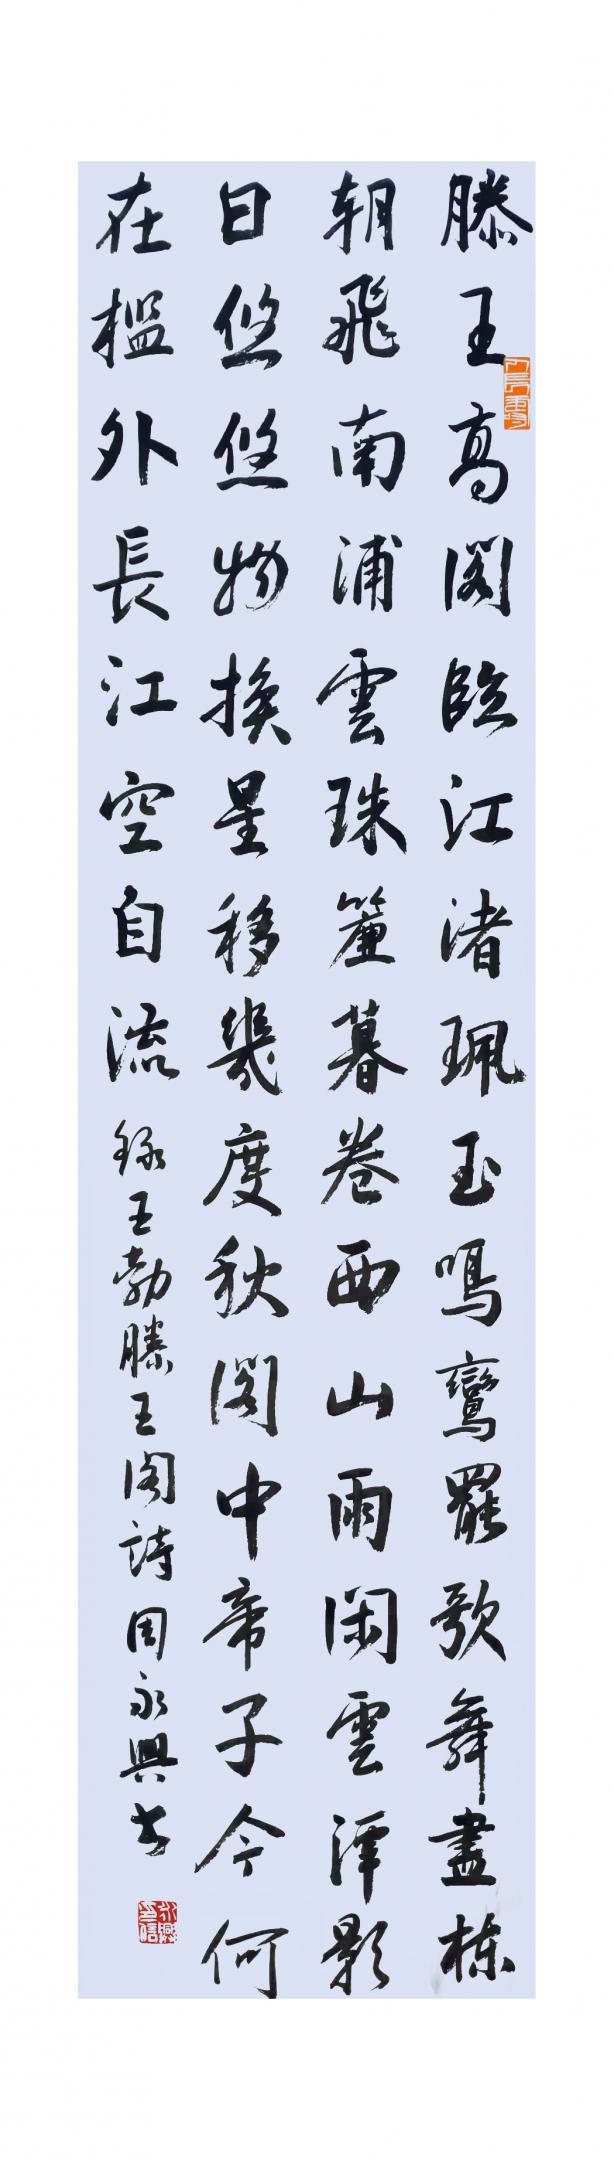 滕王高閣臨江渚珮玉鳴鸞罷歌舞盡棟
朝飛南浦雲珠簾暮卷西山雨閑雲潭影
日悠悠物換星移幾度秋閣中帝子今何
在檻外長江空自流 録王勃滕王閣詩周永興书
永興印信